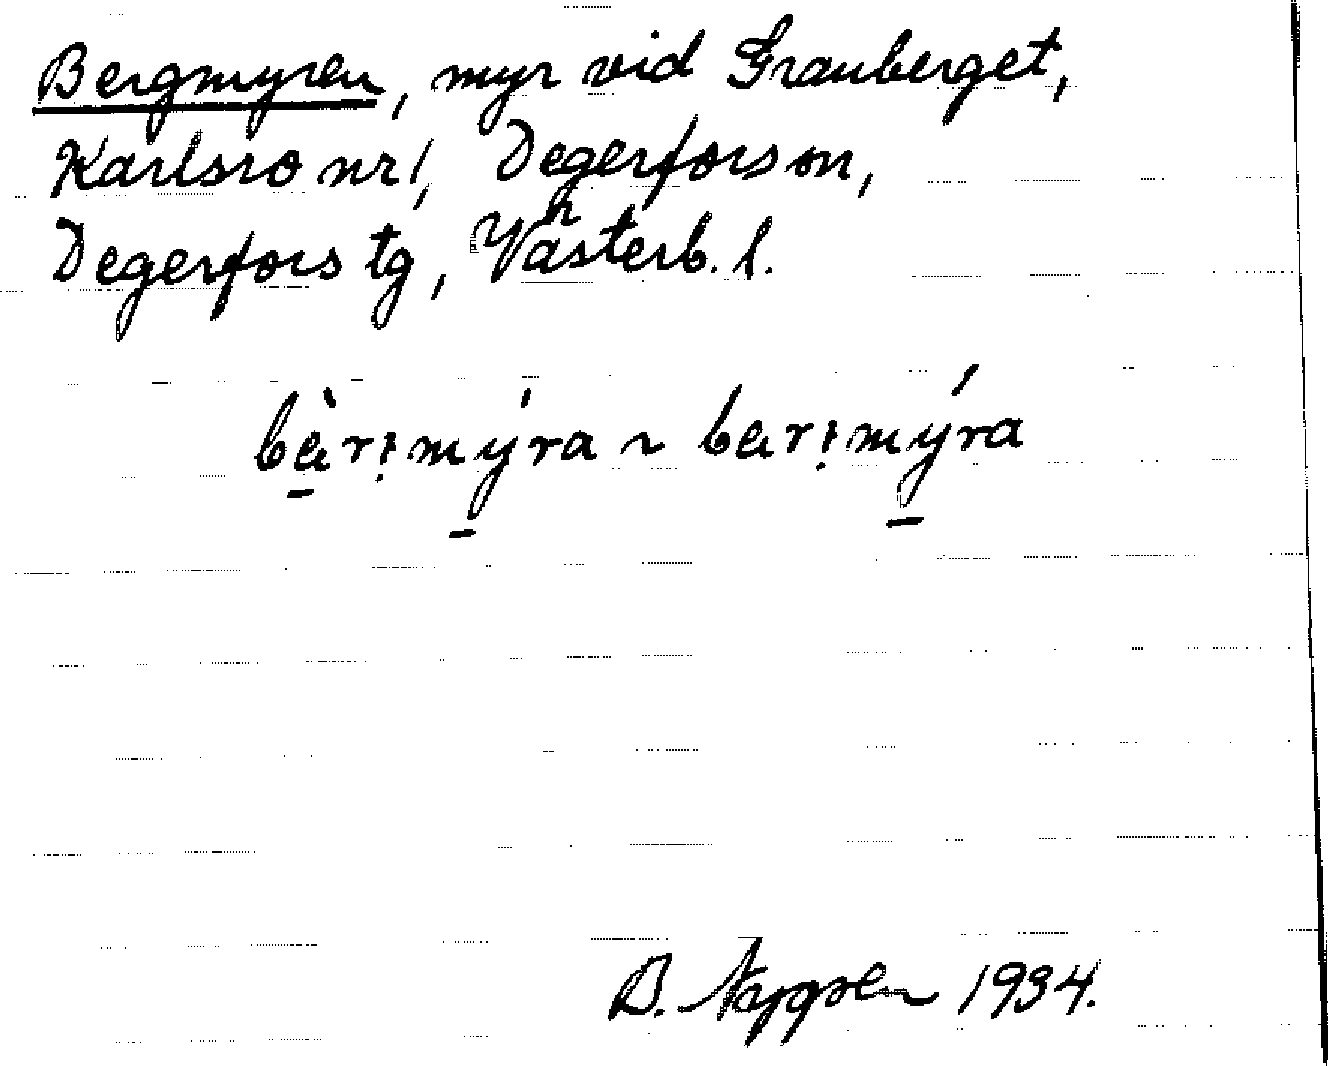 Bergmyren, myr vid Granberget,
Karlsro nr 1, Degerfors sn,
Degerfors tg, Västerb. l.
bær:mýra ~ bær:mýra
B. 1934.